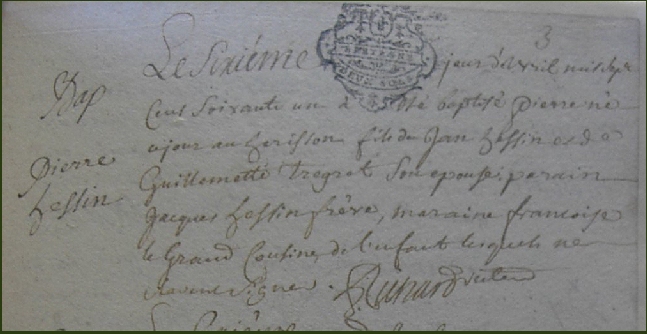 3
Le Sixiéme jour d'avril mil Sept
Bap
Cens Soixante un a Esté baptisé Pierre né
ce jour au herisson fils de Jan hessin et de
Pierre
hessin
Guillemette tregret Son epouse, parain
Jacques hessin frère, maraine francoise
le Grand Cousine de l'enfant lesquels ne
Scavent Signer. Richard
Le Sixiéme